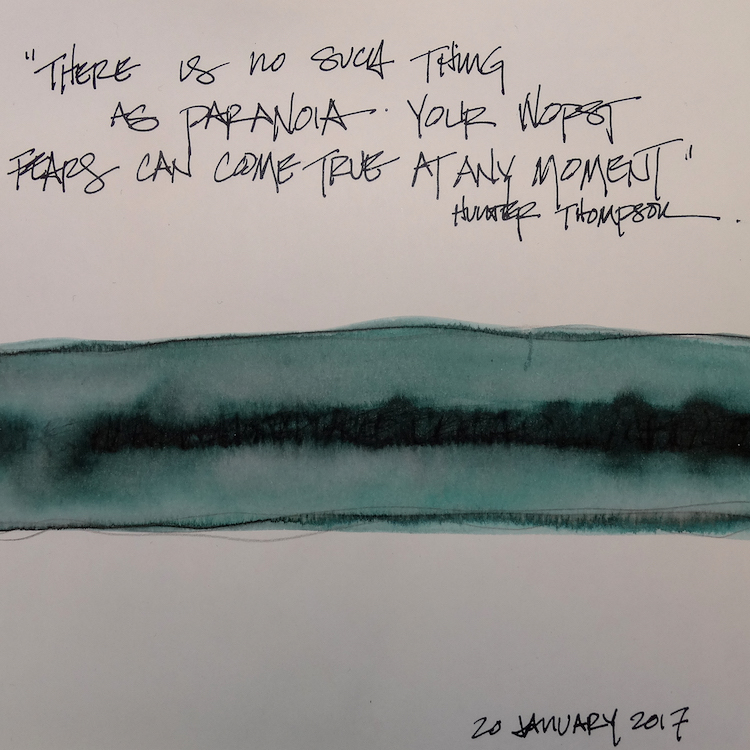 "THERE IS NO SUCH THING
AS PARANOIA. YOUR WORST
FEARS CAN COME TRUE AT ANY MOMENT"
HUNTER THOMPSON.
20 JANUARY 2017